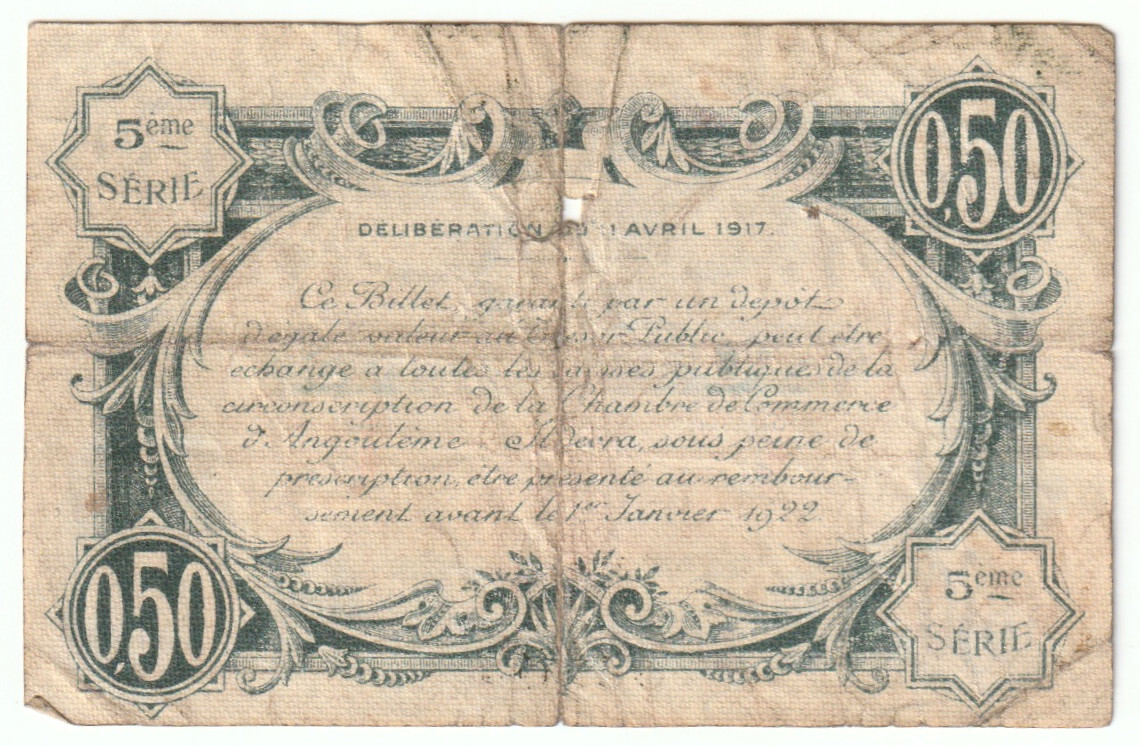 5ème
SÉRIE
0,50
DÉLIBÉRATION DU 11 AVRIL 1917.
Ce Billet, garanti par un depôt
d'égale valeur au Trésor Public, peut être
échangé a toutes les Caisses publiques de la
circonscription de la Chambre de Commerce
d'Angoulême. Il devra, sous peine de
prescription, être présenté au rembour-
sement avant le 1er Janvier 1922
0,50
5ème
SÉRIE